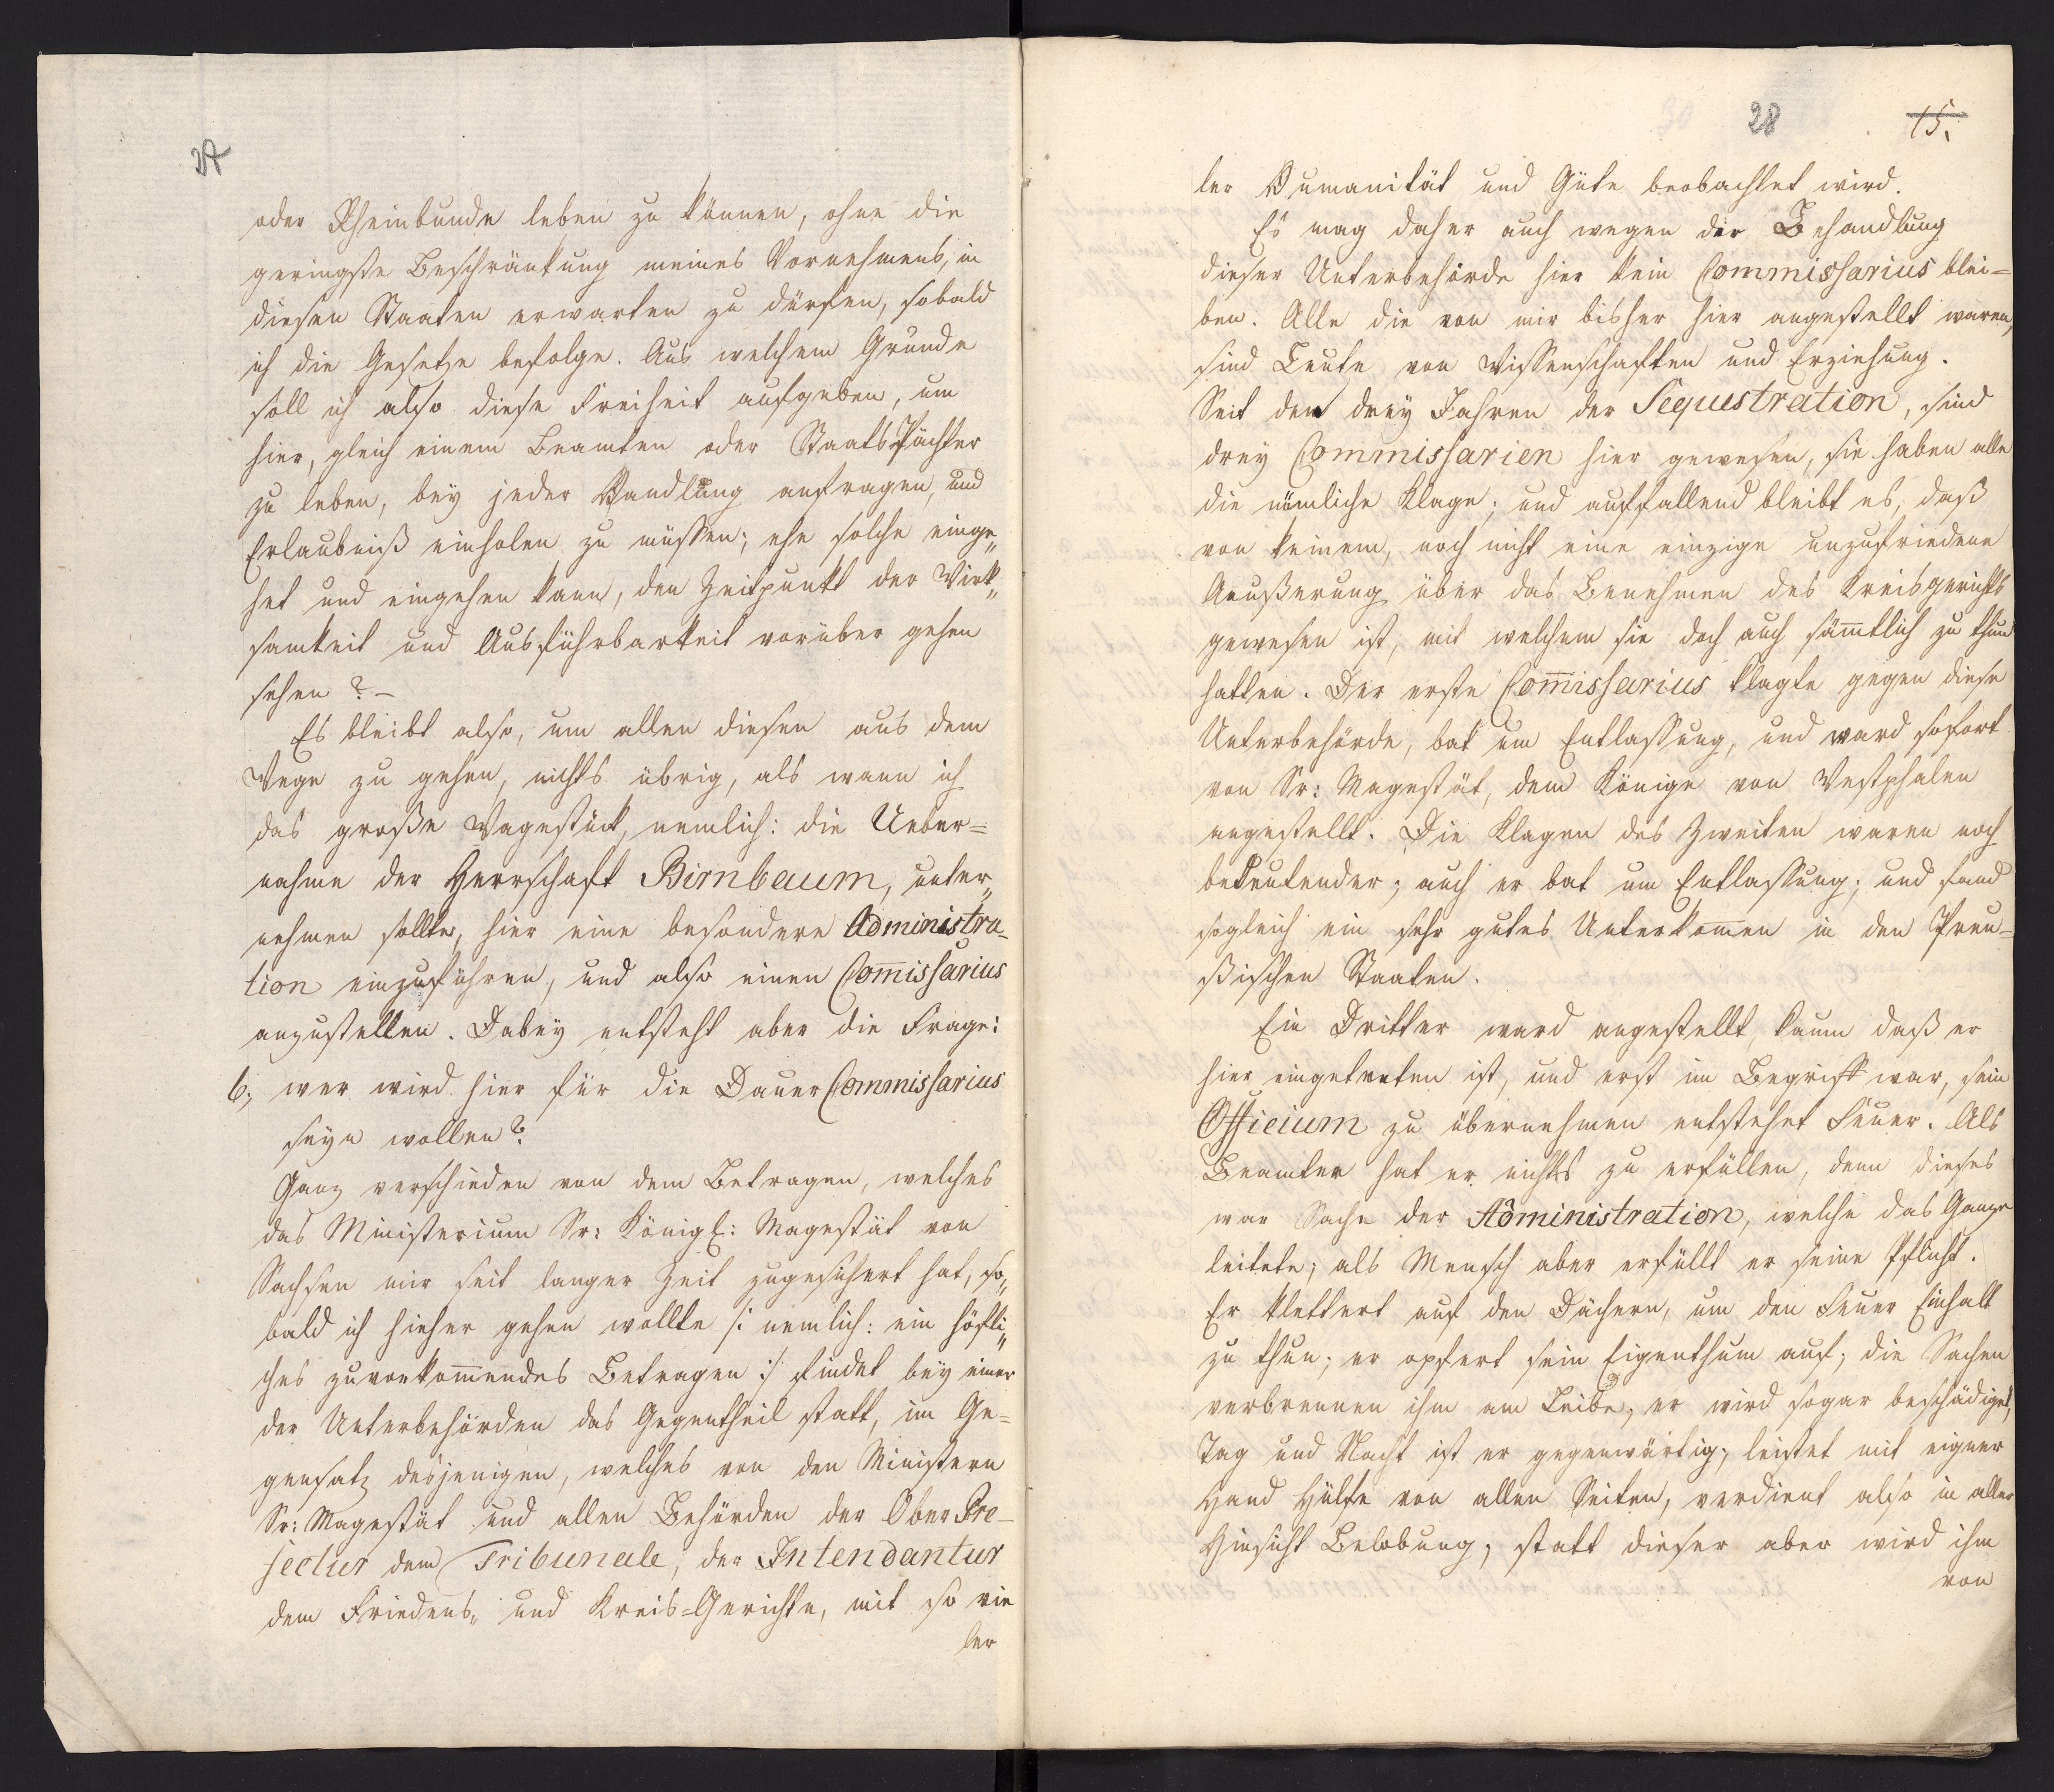 27
oder Rheinbunde leben zu können, ohne die
geringste Beschränkung meines Vornehmens, in
diesen Staaten erwarten zu dürfen, sobald
ich die Gesetze befolge. Aus welchem Grunde
soll ich also diese Freiheit aufgeben, um
hier, gleich einem Beamten oder StaatsPächter
zu leben, bey jeder Handlung anfragen, und
Erlaubniß einholen zu müssen; ehe solche einge„
het und eingehen kann, den Zeitpunkt der Wirk„
samkeit und Ausführbarkeit vorüber gehen
sehen? –
Es bleibt also, um allen diesen aus dem
Wege zu gehen, nichts übrig, als wann ich
das große Wagestück, nemlich: die Ueber=
nahme der Herrschaft Birnbaum, unter„
nehmen sollte, hier eine besondere Administra-
tion einzuführen, und also einen Com̅issarius
anzustellen. Dabey entsteht aber die Frage:
6; wer wird hier für die Dauer Commissarius
seyn wollen?
Ganz verschieden von dem Betragen, welches
das Ministerium Sr: Königl: Magestät von
Sachsen mir seit langer Zeit zugesichert hat, so„
bald ich hieher gehen wollte /: nemlich: ein höfli„
ches zuvorkom̅endes Betragen :/ findet bey einer
der Unterbehörden das Gegentheil statt, im Ge=
gensatz desjenigen, welches von den Ministern
Sr: Magestät und allen Behörden der Ober Pre-
fectur dem Tribunale, der Intendantur
dem Friedens„ und Kreis=Gerichte, mit so vie
ler
28
15.
ler Humanität und Güte beobachtet wird.
Es mag daher auch wegen der Behandlung
dieser Unterbehörde hier kein Commissarius blei=
ben. Alle die von mir bisher hier angestellt waren,
sind Leute von Wissenschaften und Erziehung.
Seit den drey Jahren der Sequestration, sind
drey Commissarien hier gewesen, sie haben alle
die nämliche Klage; und auffallend bleibt es, daß
von keinem, noch nicht eine einzige unzufriedene
Aeußerung über das Benehmen des Kreisgerichts
gewesen ist, mit welchem sie doch auch säm̅tlich zu thun
hatten. Der erste Com̅issarius klagte gegen diese
Unterbehörde, bat um Entlassung, und ward sofort
von Sr: Magestät, dem Könige von Westphalen
angestellt. Die Klagen des Zweiten waren noch
bedeutender; auch er bat um Entlassung; und fand
sogleich ein sehr gutes Unterkom̅en in den Preu=
ßischen Staaten.
Ein Dritter ward angestellt, kaum daß er
hier eingetreten ist, und erst im Begriff war, sein
Officium zu übernehmen entstehet Feuer. Als
Beamter hat er nichts zu erfüllen, denn dieses
war Sache der Administration, welche das Ganze
leitete; als Mensch aber erfüllt er seine Pflicht.
Er klettert auf den Dächern, um den Feuer Einhalt
zu thun; er opfert sein Eigenthum auf; die Sachen
verbrennen ihm am Leibe, er wird sogar beschädiget,
Tag und Nacht ist er gegenwärtig, leistet mit eigner
Hand Hülfe von allen Seiten, verdient also in aller
Hinsicht Belobung; statt dieser aber wird ihm
von